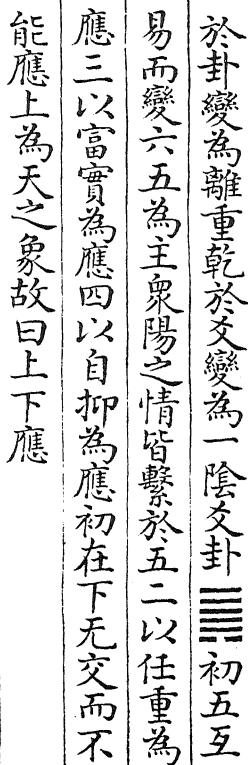 於卦變為離重乾於爻變為一陰爻卦䷫初五互
易而變六五為主衆陽之情皆繫於五二以任重為
應三以富實為應四以自抑為應初在下无交而不
能應上為天之象故曰上下應